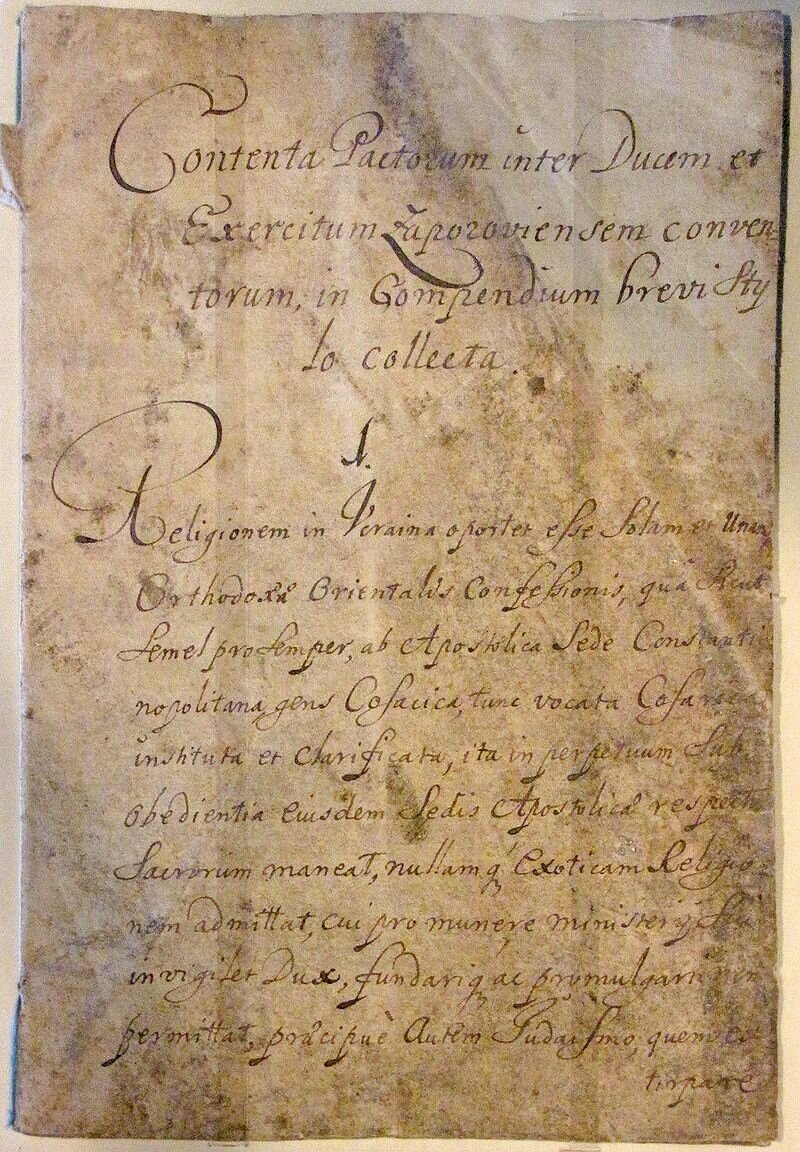 Contenta Pactorum inter Ducem et
Exercitum Zaporoviensem conven
torum, in Compendium brevi Sty
lo collecta.
1.
Religionem in Vcraina oportet esse Solam et Unam
Orthodoxæ Orientalis Confessionis, quæ Sicut
Semel pro Semper, ab Apostolica Sede Constanti
nopolitana gens Cosacica, tunc vocata
instituta et Clarificata, ita in perpetuum Sub
obedientia eiusdem Sedis Apostolicæ respectu
Sacrorum maneat, nullamq Exoticam Religio
nem admittat, cui pro munere ministerij Sui
invigilet Dux, fundariq ac promulgari non
permittat, præcipuè Autem Judaismo, quem ex
tirpare